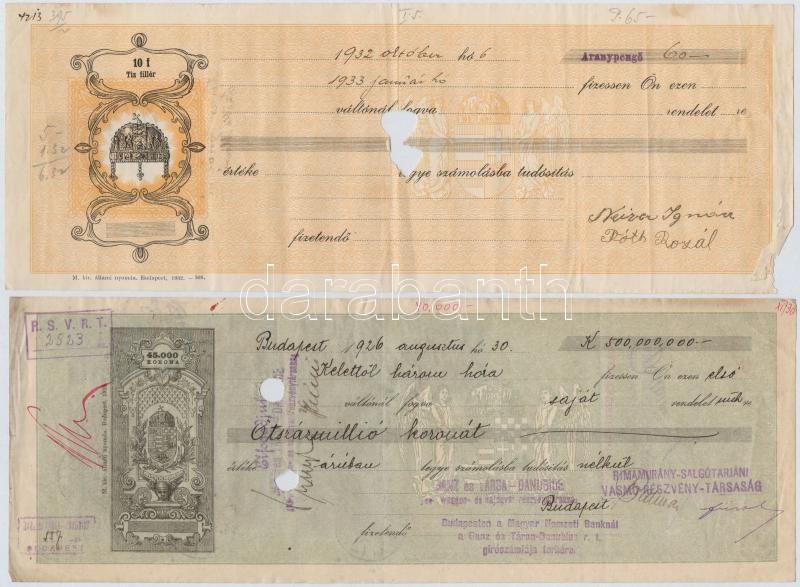 4213 395
I.S.
P.65-
10 f
Tiz fillér
1932 október hó 6
Aranypengő 60—
1933 január hó
fizessen Ön ezen
váltónál fogva
rendelet re
5-
1.32
6.32
értéke
legye számolásba tudósítás
fizetendő
Ignác
Róth Rozál
M. kir. állami nyomda. Budapest, 1932. —
darabanth
R. S. V. R. T.
2523
10,000—
45.000
KORONA
Budapest, 1926 augusztus hó 30.
K 500,000,000—
Kelettől három hóra
fizessen Ön ezen első
váltónál fogva
saját
rendelet
Ötszázmillió koronát
értéke áruban
legye számolásba tudósítás nélkül
RIMAMURÁNY-SALGÓTARJÁNI
VASMŰ-RÉSZVÉNY-TÁRSASÁG
GANZ és TÁRSA-DANUBIUS
Budapest
fizetendő
Budapesten a Magyar Nemzeti Banknál
a Ganz és Társa-Danubius r. t.
girószámlája terhére.
BUDAPEST